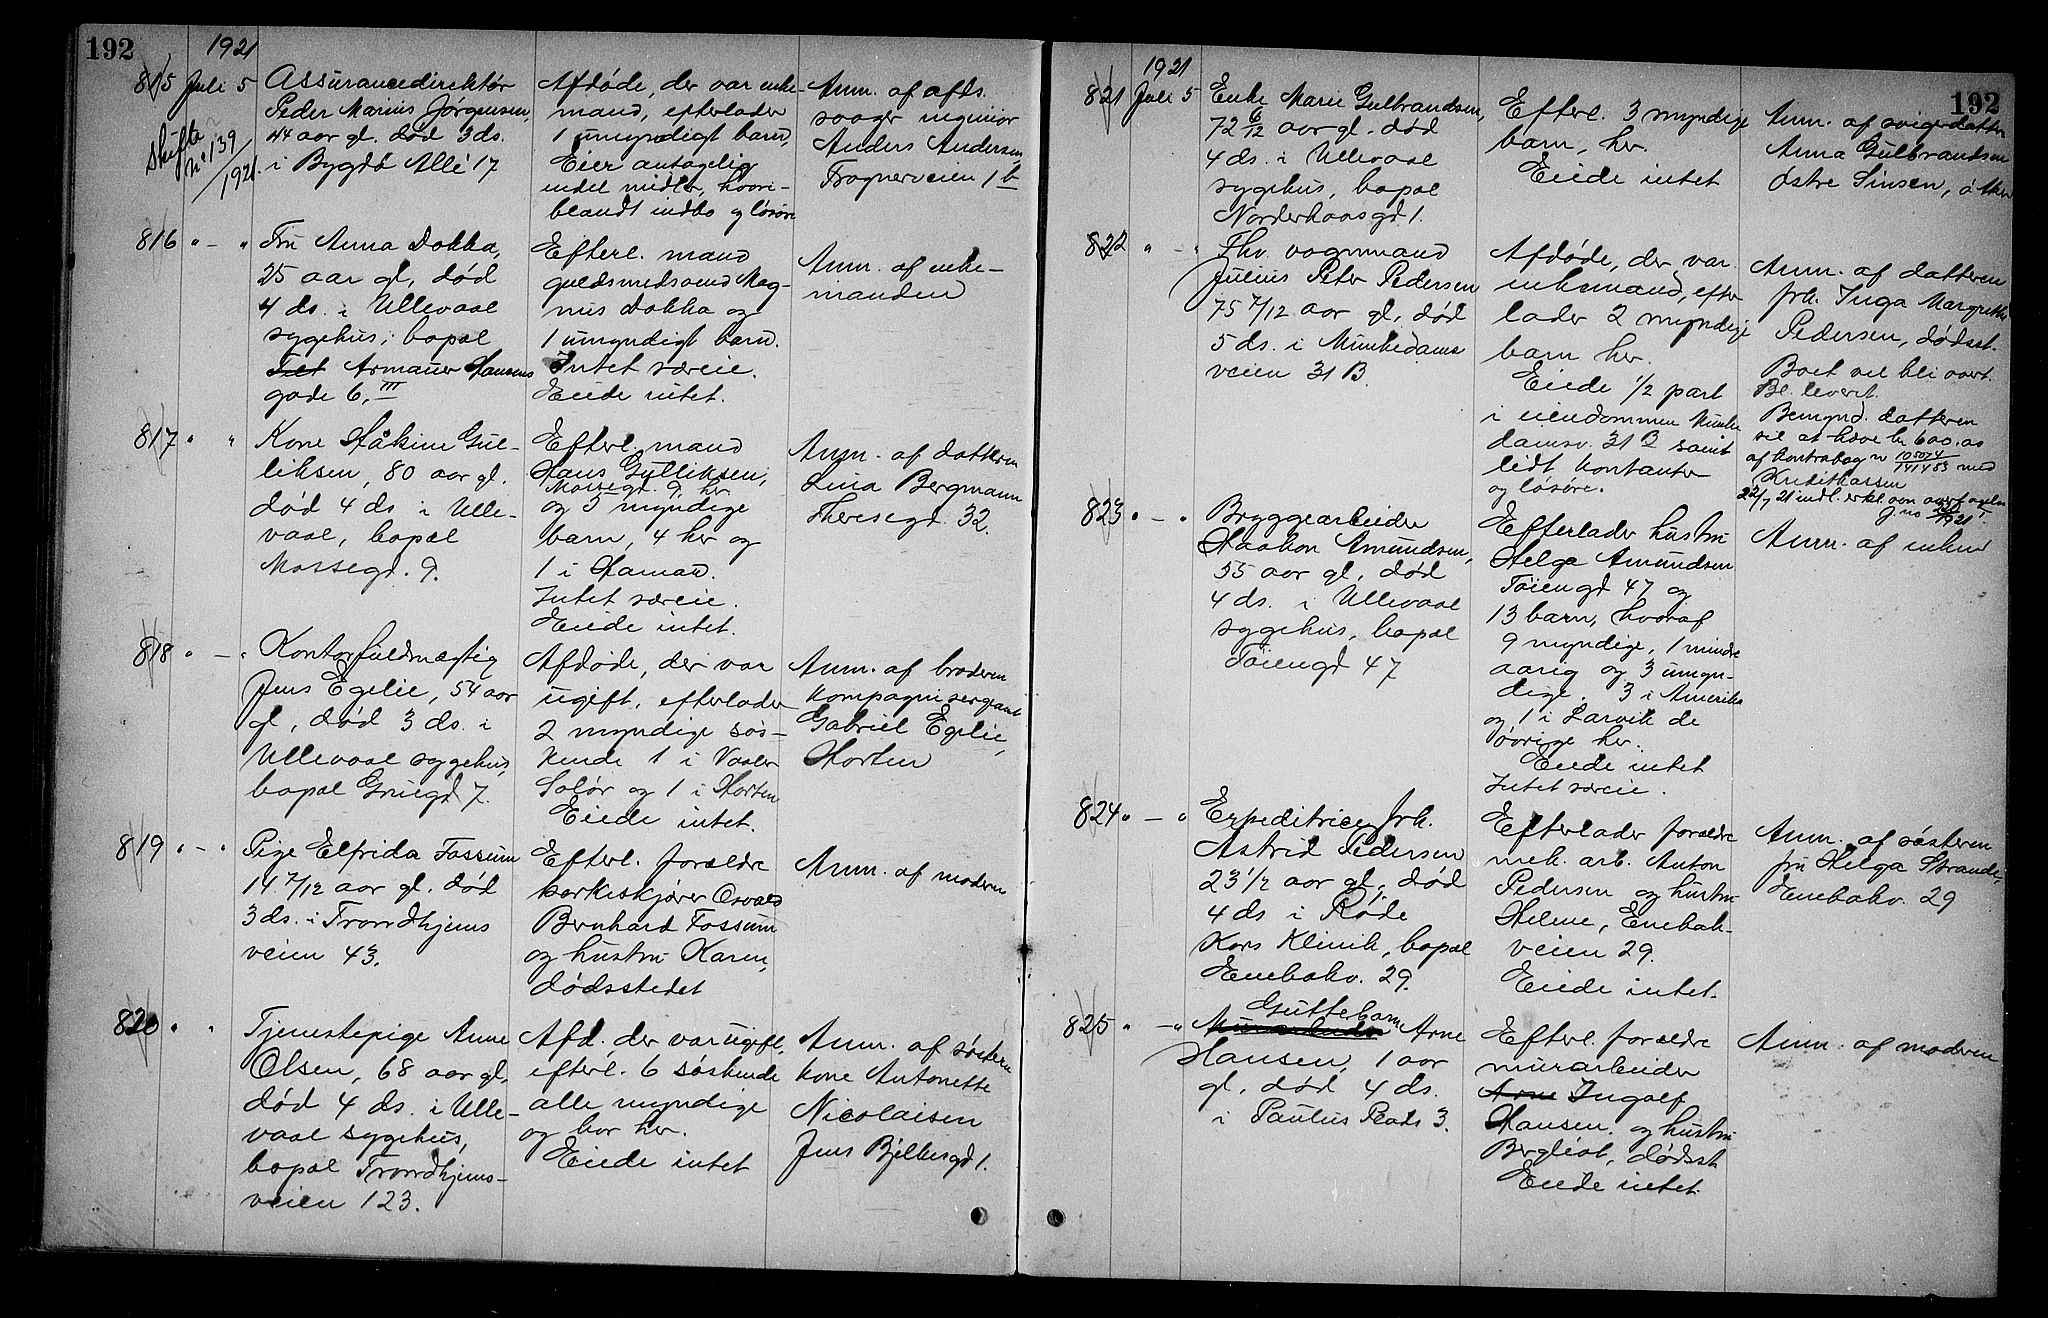 192
1921
815 Juli 5
Skifte
No 139
/1921.
Assurancedirektør
Peder Marius Jørgensen,
44 aar gl. død 3 ds.
i Bygdø Allé 17
Afdøde, der var enke-
mand, efterlader
1 umyndigt barn,
Eier antagelig
endel midler, hvori-
blandt indbo og løsøre
Anm. af afds.
svoger ingeniør
Anders Andersen,
Frognerveien 1 b
816 " - "
Fru Anna Dokka,
25 aar gl, død
4 ds. i Ullevaal
sygehus, bopæl
Armauer Hansens
gade 6, III
Efterl. mand
guldsmedsvend Mag-
nus Dokka og
1 umyndigt barn.
Intet særeie.
Eiede intet.
Anm. af enke-
manden
817 " "
Kone Håkine Gul-
liksen, 80 aar gl.
død 4 ds. i Ulle-
vaal, bopæl
Mossegd. 9.
Efterl. mand
Hans Gulliksen,
Mossegd. 9, her
og 5 myndige
barn, 4 her og
1 i Hamar.
Intet særeie.
Eiede intet.
Anm. af datteren
Lina Bergmann
Theresegd. 32.
818 " - "
Kontorfuldmægtig
Jens Egelie, 54 aar
gl, død 3 ds. i
Ullevaal sygehus,
bopæl Griegd 7.
Afdøde, der var
ugift, efterlader
2 myndige søs-
kende 1 i Vaaler
Solør og 1 i Horten
Eiede intet.
Anm. af broderen
kompagnisergeant
Gabriel Egelie,
Horten
819 " - "
Pige Elfrida Fossum
14 7/12 aar gl. død
3 ds. i Trondhjems
veien 43.
Efterl. forældre
Osvald
Bernhard Fossum
og hustru Karen,
dødsstedet
Anm. af moderen
820 " "
Tjenestepige Anne
Olsen, 68 aar gl,
død 4 ds. i Ulle-
vaal sygehus,
bopæl Trondhjems-
veien 123.
Afd. der var ugift,
efterl. 6 søskende
alle myndige
og bor her.
Eiede intet
Anm. af søsteren
kone Antonette
Nicolaisen
Jens Bjelkesgd 1.
192
1921
821 Juli 5
Enke Marie Gulbrandsen,
72 6/12 aar gl. død
4 ds. i Ullevaal
sygehus, bopæl
Norderhovsgd 1.
Efterl. 3 myndige
barn, her.
Eiede intet
Anm. af svigerdatter
Anna Gulbrandsen
Østre Sinsen, ø Aker
822 " - "
Fhv. vognmand
Julius Peter Pedersen
75 7/12 aar gl, død
5 ds. i Munkedams
veien 31 B.
Afdøde, der var
enkemand, efter
lader 2 myndige
barn her.
Eiede 1/2 part
i eiendommen Munke
damsv. 31 B samt
lidt kontanter
og løsøre.
Anm. af datteren
frk. Inga Margrethe
Pedersen, dødsst.
Boet vil bli overt.
Bl. levert.
Bemynd. datteren
til at hæve kr 600.00
af kontrabog nr 105074/141453 med
Kreditkassen
22/7 21 indl. erkl. om overtagelse
J. no
823 " - "
Bryggearbeider
Haakon Amundsen,
55 aar gl, død
4 ds. i Ullevaal
sygehus, bopæl
Tøiengd 47
Efterlader hustru
Helga Amundsen
Tøiengd 47 og
13 barn, hvoraf
9 myndige, 1 mindre
aarig og 3 umyn-
dige. 3 i Amerika
og 1 i Larvik de
øvrige her.
Eiede intet
Intet særeie.
Anm. af enken
824 " - "
Expeditrice, frk.
Astrid Pedersen
23 1/2 aar gl, død
4 ds i Røde
Kors Klinik, bopæl
Enebakv. 29.
Efterlader forældre
mek. arb. Anton
Pedersen og hustru
Helene, Enebak-
veien 29.
Eiede intet.
Anm. af søsteren
fru Helga Strande,
Enebakv. 29
825 " - "
Guttebarn
Murarbeider Arne
Hansen, 1 aar
gl, død 4 ds.
i Paulus Plads 3.
Efterl. forældre
murarbeider
Arne Ingolf
Hansen og hustru
Bergliot, dødsst
Eiede intet.
Anm. af moderen